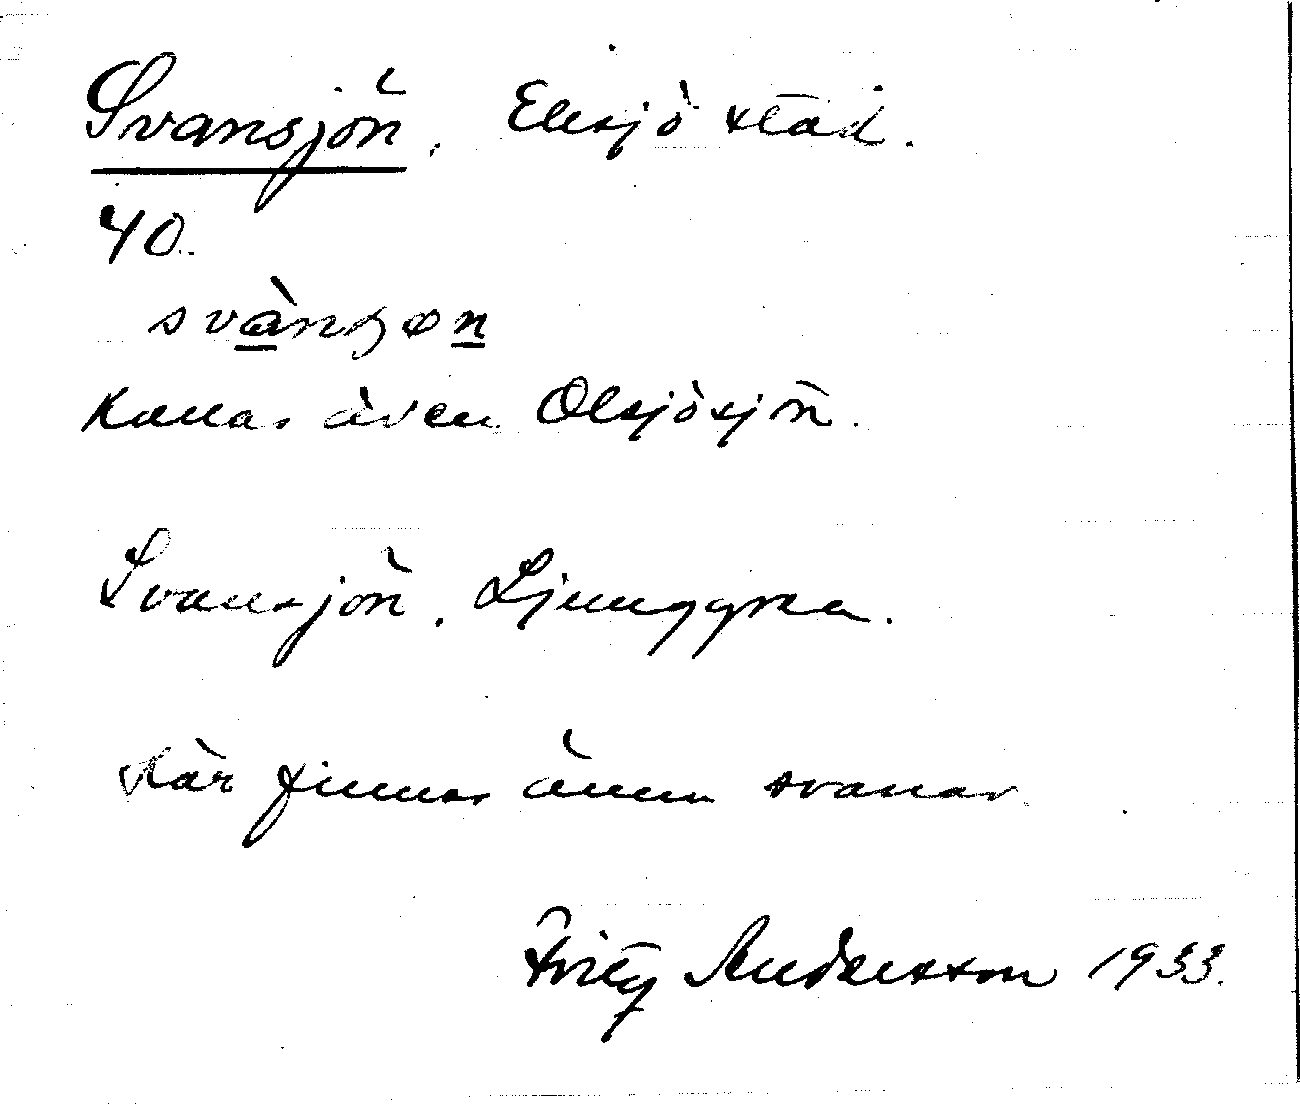 Svansjön. Eksjö stad.
40.
svànʂøn
Kallas även Olsjösjön.
Svansjön. Ljunggren.
Här finnas ännu svanar
Fritz Andersson 1933.